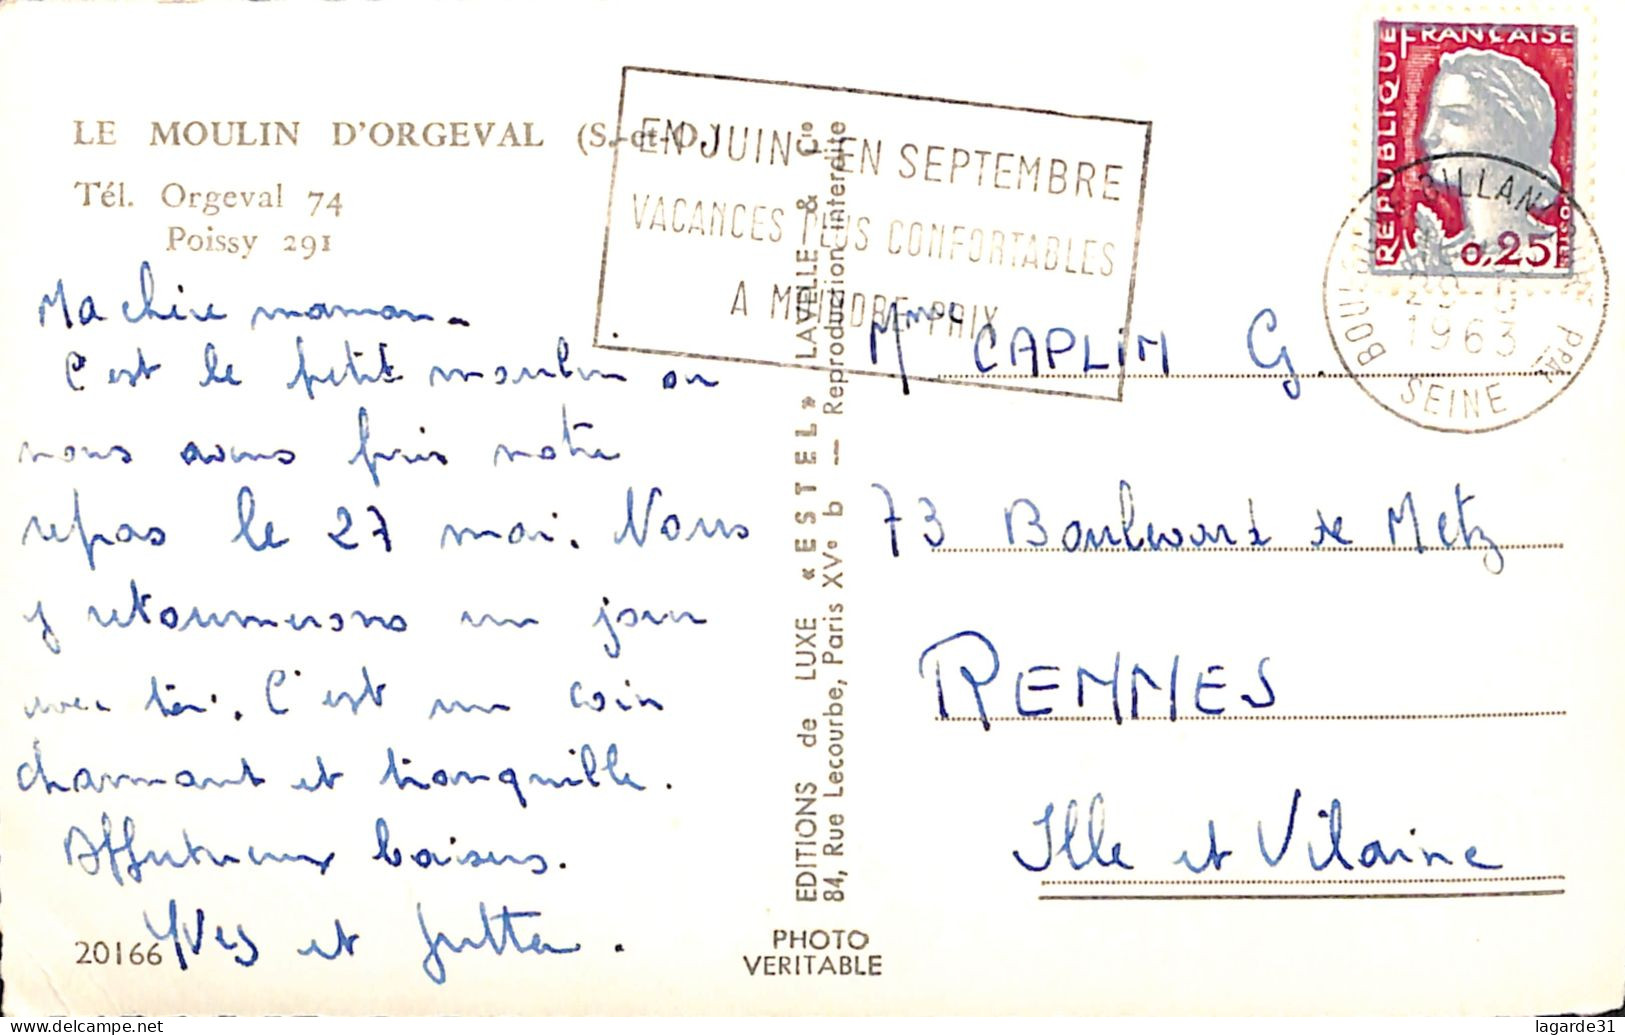 LE MOULIN D'ORGEVAL (S.-et-O.)
Tél. Orgeval 74
Poissy 291
Ma chère maman.
C'est le petit moulin ou
nous avons pris notre
repas le 27 mai. Nous
y retournerons un jour
avec toi. C'est un coin
charmant et tranquille.
Affectueux baisers.
Yves et Jutta.
20166
EN JUIN - EN SEPTEMBRE
VACANCES PLUS CONFORTABLES
A MOINDRE PRIX
EDITIONS de LUXE « ESTEL » LAVELLE & Cie
84, Rue Lecourbe, Paris XVe b — Reproduction interdite
PHOTO
VERITABLE
REPUBLIQUE FRANÇAISE
0,25
BOULOGNE BILLANCOURT PPAL
1963
SEINE
Mme CAPLIM G.
73 Boulevard de Metz
RENNES
Ille et Vilaine
lagarde31